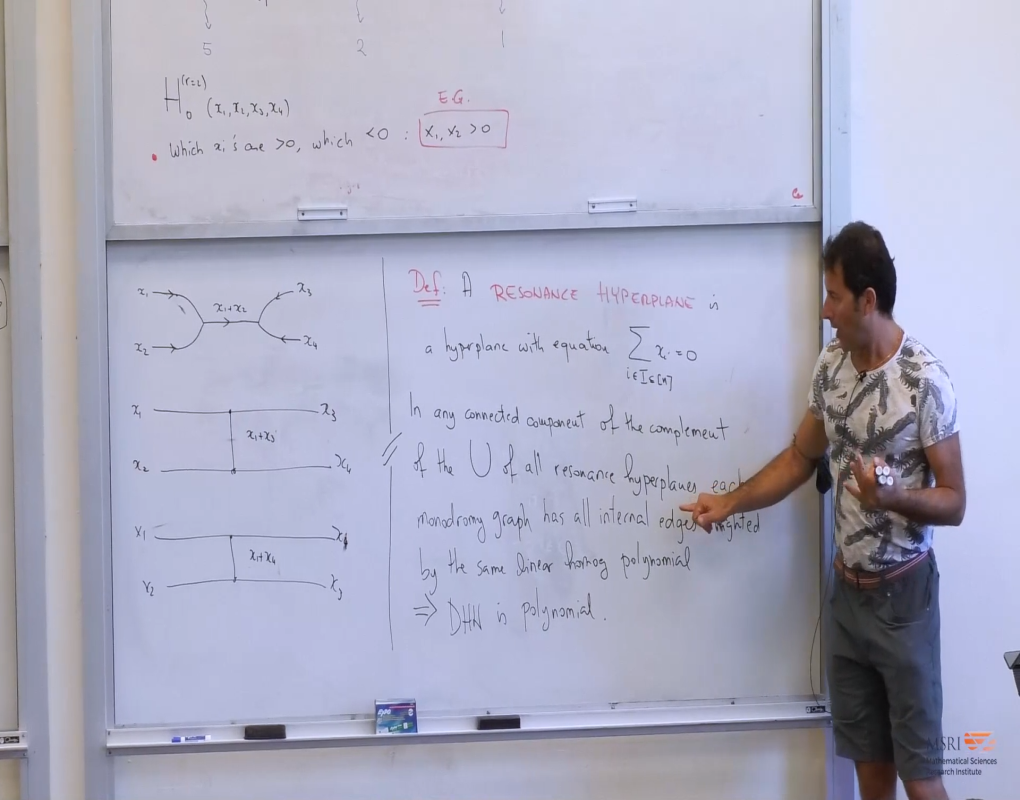 5 2 1
H₀^(r=2) (x₁, x₂, x₃, x₄)
E.G.
• Which xᵢ's are >0, which <0 : x₁, x₂ >0
x₁ x₃
x₁+x₂
x₂ x₄
x₁ x₃
x₁+x₃
x₂ x₄
x₁
x₁+x₄
x₂ x₃
Def: A RESONANCE HYPERPLANE is
a hyperplane with equation ∑ xᵢ = 0
i∈I⊆[n]
In any connected component of the complement
of the ∪ of all resonance hyperplanes each
monodromy graph has all internal edges weighted
by the same linear homog polynomial
⇒ DHN is polynomial.
MSRI
Mathematical Sciences
Research Institute